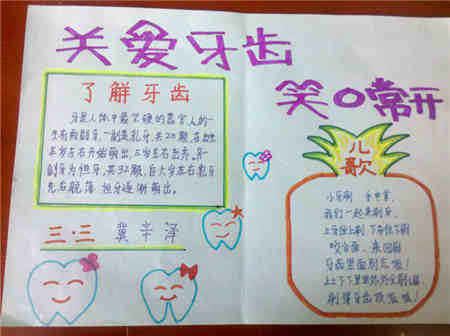 关爱牙齿
笑口常开
了解牙齿
牙是人体中最坚硬的器官，人的一
生有两副牙，一副是乳牙，共20颗，在出生
半岁左右开始萌出，三岁左右出齐。另一
副牙为恒牙，共32颗，自六岁左右乳牙
先后脱落，恒牙逐渐萌出。
三·三 冀辛泽
儿
歌
小牙刷 手中拿，
我们一起来刷牙，
上牙往上刷 下牙往下刷
咬合面，来回刷
牙齿里面别忘啦！
上上下下里里外外全刷遍
刷得牙齿